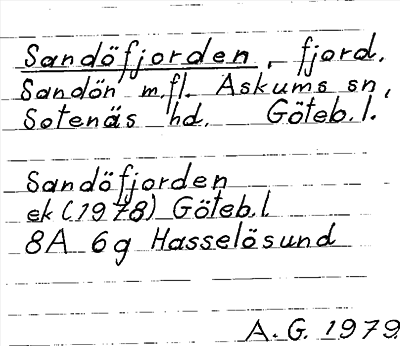 Sandöfjorden, fjord.
Sandön m.fl. Askums sn,
Sotenäs hd. Göteb.l.
Sandöfjorden
ek (1978) Göteb.l
8A 6g Hasselösund
A.G. 1979.